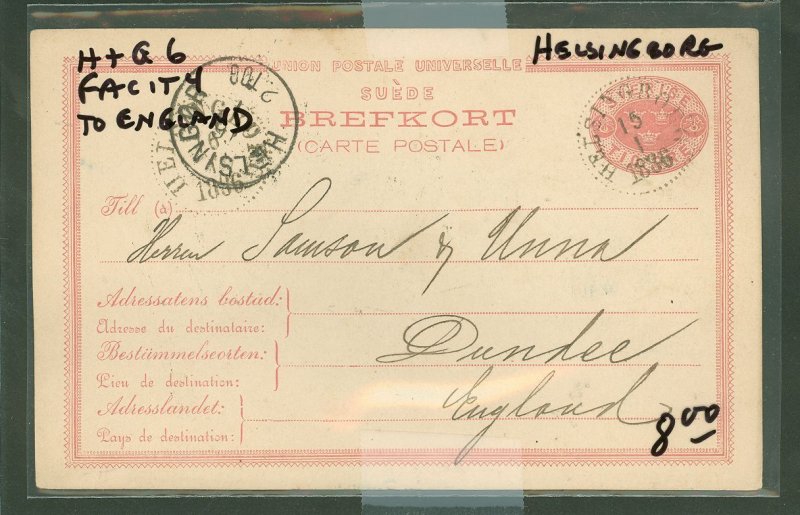 H+G 6
FACIT 4
TO ENGLAND
HELSINGBORG
UNION POSTALE UNIVERSELLE
SUÈDE
BREFKORT
(CARTE POSTALE)
HELSINGBORG
15
1
1886
HELSINGBORG
2 TUR
1886
Till (à)
Herren Samson & Unna
Adressatens bostad:
Adresse du destinataire:
Bestämmelseorten:
Dundee
Lieu de destination:
Adresslandet:
England
Pays de destination:
8.00